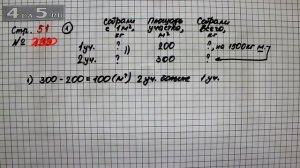 4-a-5.ru
Стр. 51 1
№ 299
Собрали с 1 м², кг Площадь участка, м² Собрали всего, кг
1 уч. ? 200 ?, на 1500 кг м.
2 уч. ? 300 ?
1) 300-200=100(м²) 2 уч. больше 1 уч.